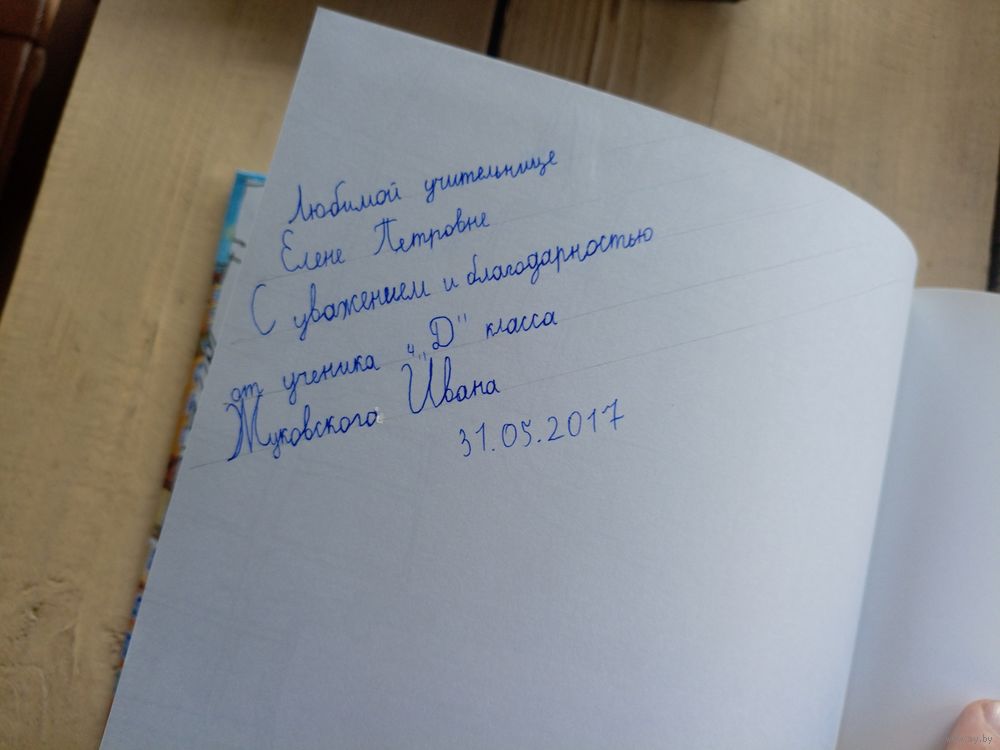 Любимой учительнице
Елене Петровне
С уважением и благодарностью
от ученика 4 „Д" класса
Жуковского Ивана
31.05.2017
ay.by